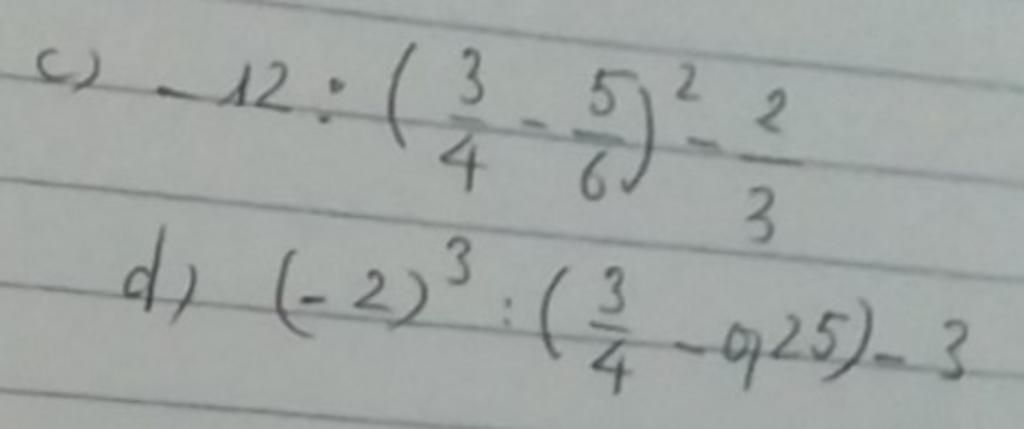 c) - 12 : ( 3/4 - 5/6 )² - 2/3
d) (- 2)³ : ( 3/4 - 0,25) - 3